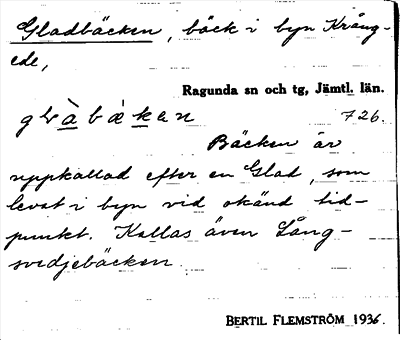 Gladbäcken, bäck i byn Krång-
ede,
Ragunda sn och tg, Jämtl. län.
726.
Bäcken är
uppkallad efter en Glad, som
levat i byn vid okänd tid-
punkt. Kallas även Lång-
svedjebäcken
BERTIL FLEMSTRÖM 1936.